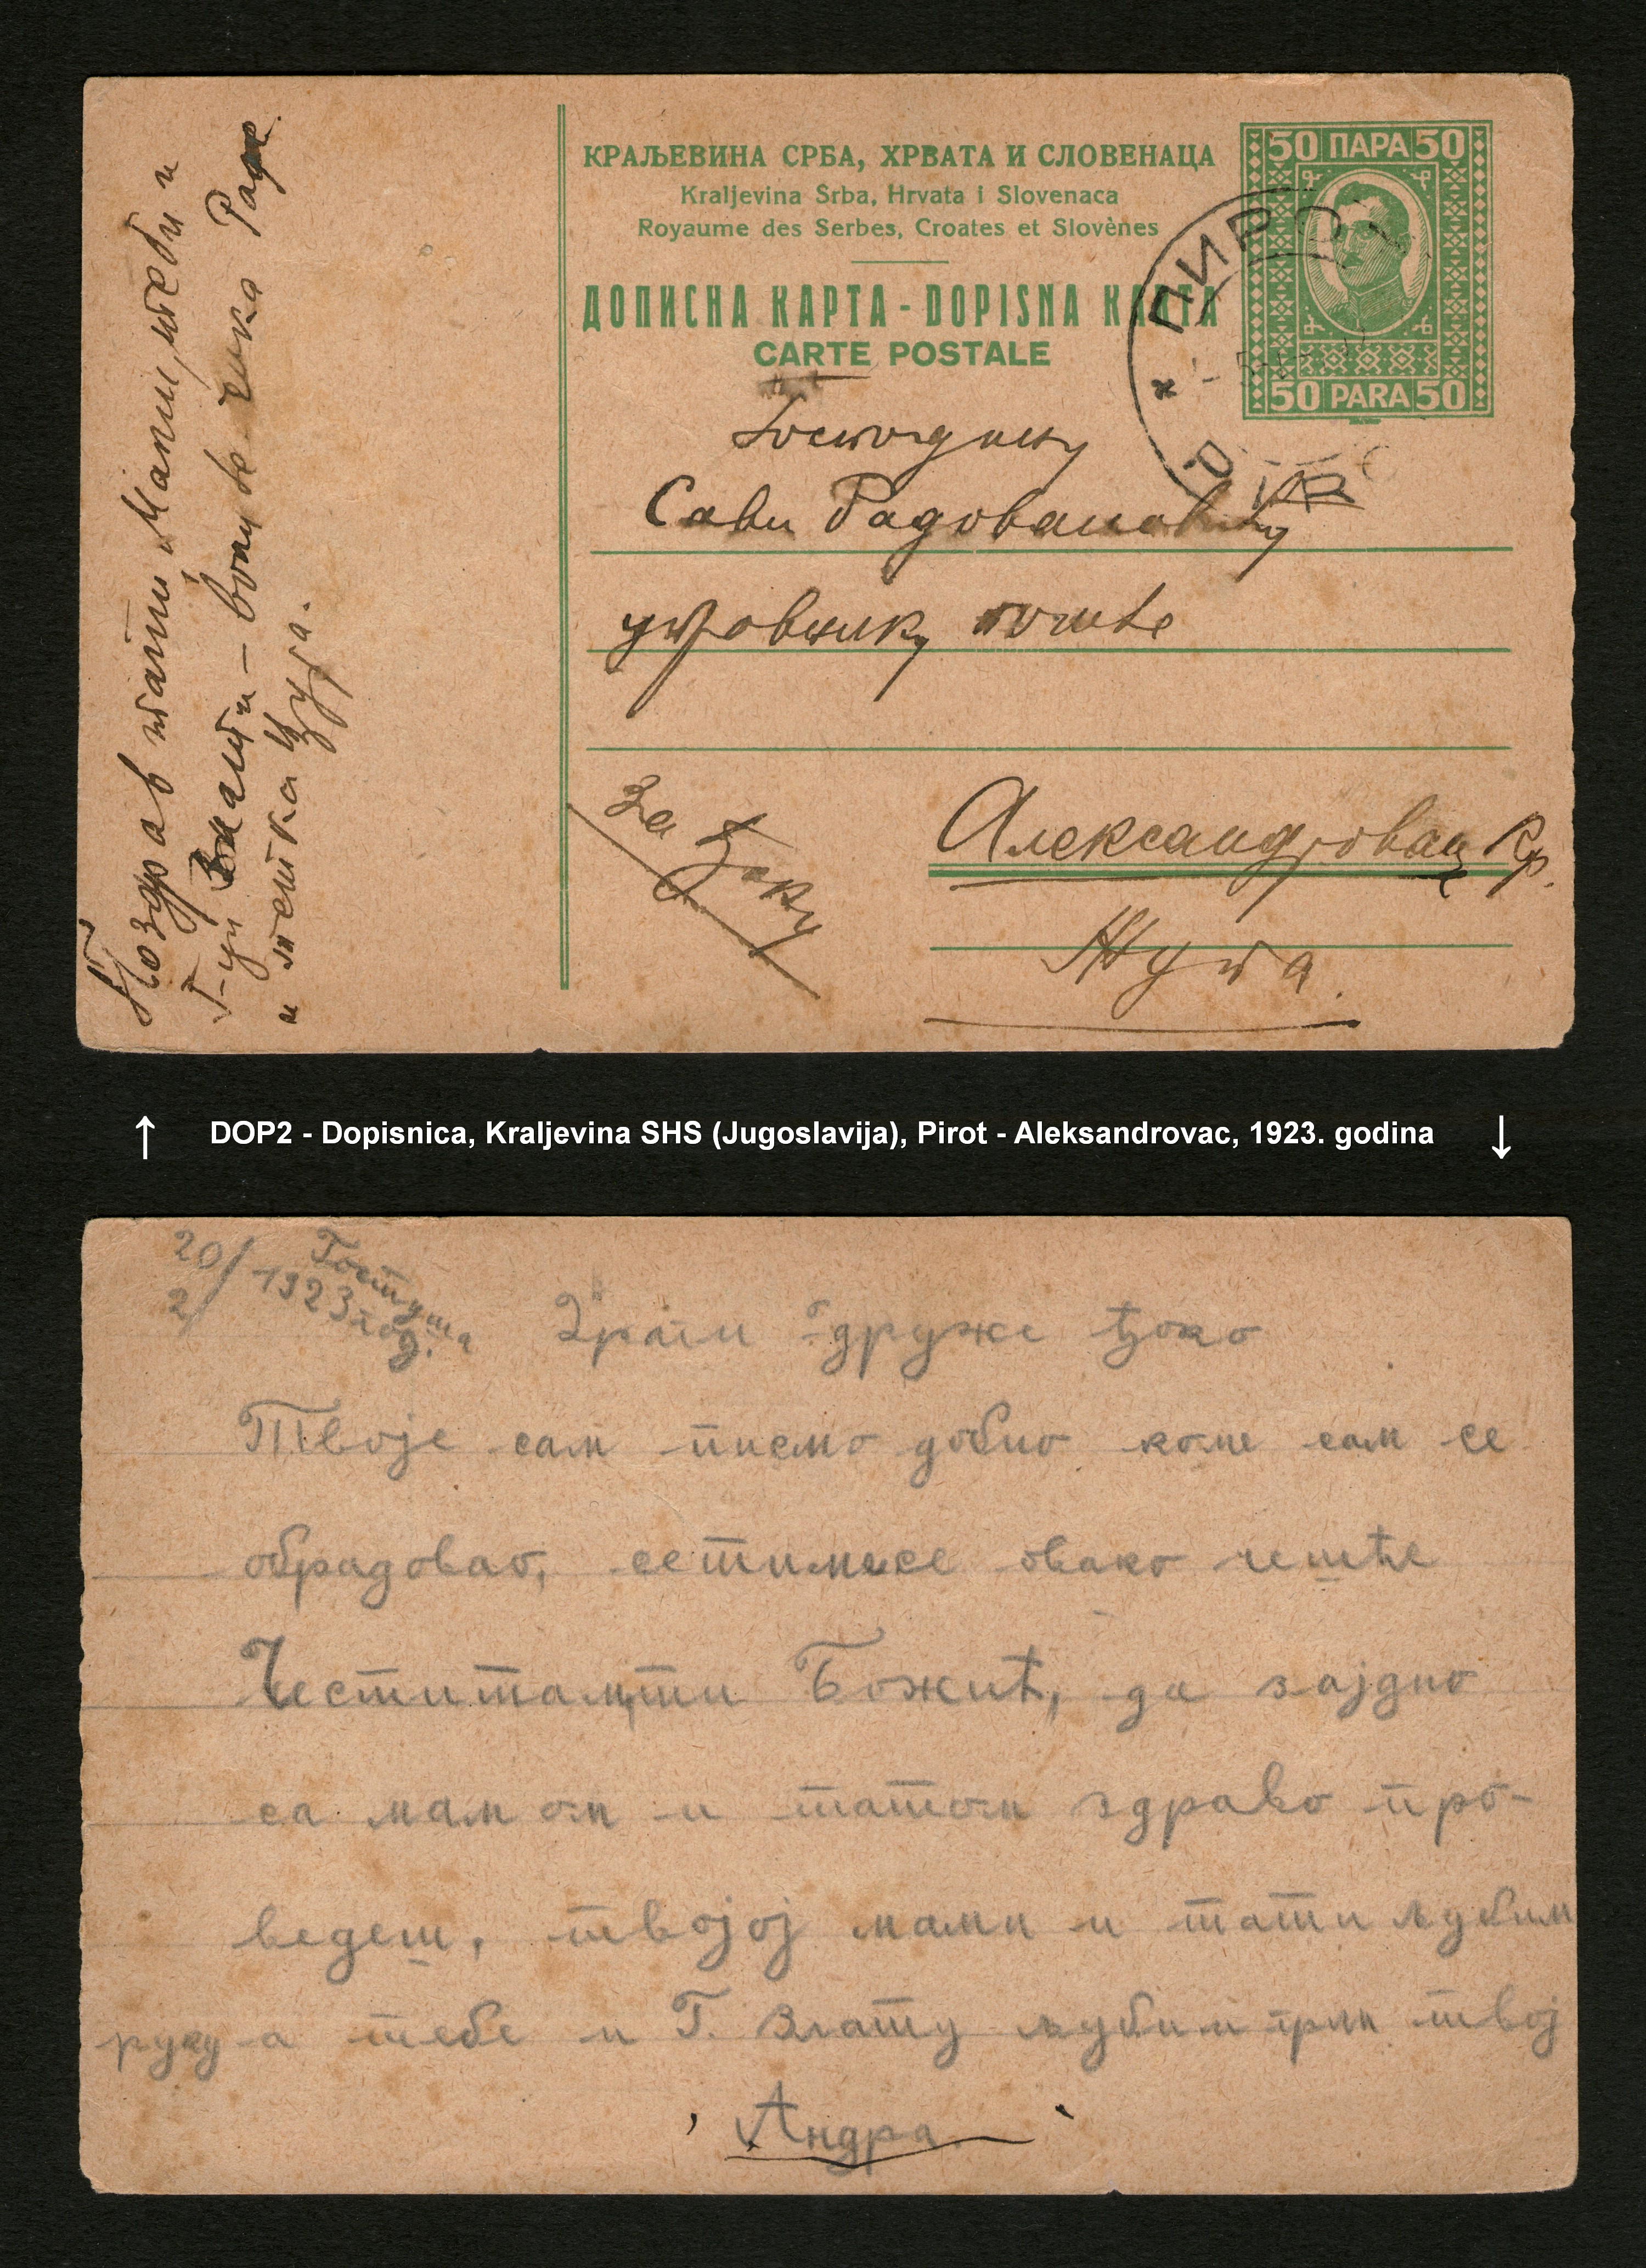 КРАЉЕВИНА СРБА, ХРВАТА И СЛОВЕНАЦА
Kraljevina Srba, Hrvata i Slovenaca
Royaume des Serbes, Croates et Slovènes
ДОПИСНА КАРТА - DOPISNA KARTA
CARTE POSTALE
50 ПАРА 50
50 PARA 50
ПИРОТ
Господину
Сави Радовановићу
управнику поште
За Ђоку
Александровац Кр.
Жупа.
Поздрав тати, мами, теби и
Г-ђи Злати — воли Вас чика Раде
и тетка Цура.
↑ DOP2 - Dopisnica, Kraljevina SHS (Jugoslavija), Pirot - Aleksandrovac, 1923. godina ↓
20/2 1923 год.
Гостуша
Драги друже Ђоко
Твоје сам писмо добио коме сам се
обрадовао, сетимсе овако чешће
Честитамти Божић, да заједно
са мамом и татом здраво про-
ведеш, твојој мами и тати љубим
руку а тебе и Г. Злату љубим твој
Андра.